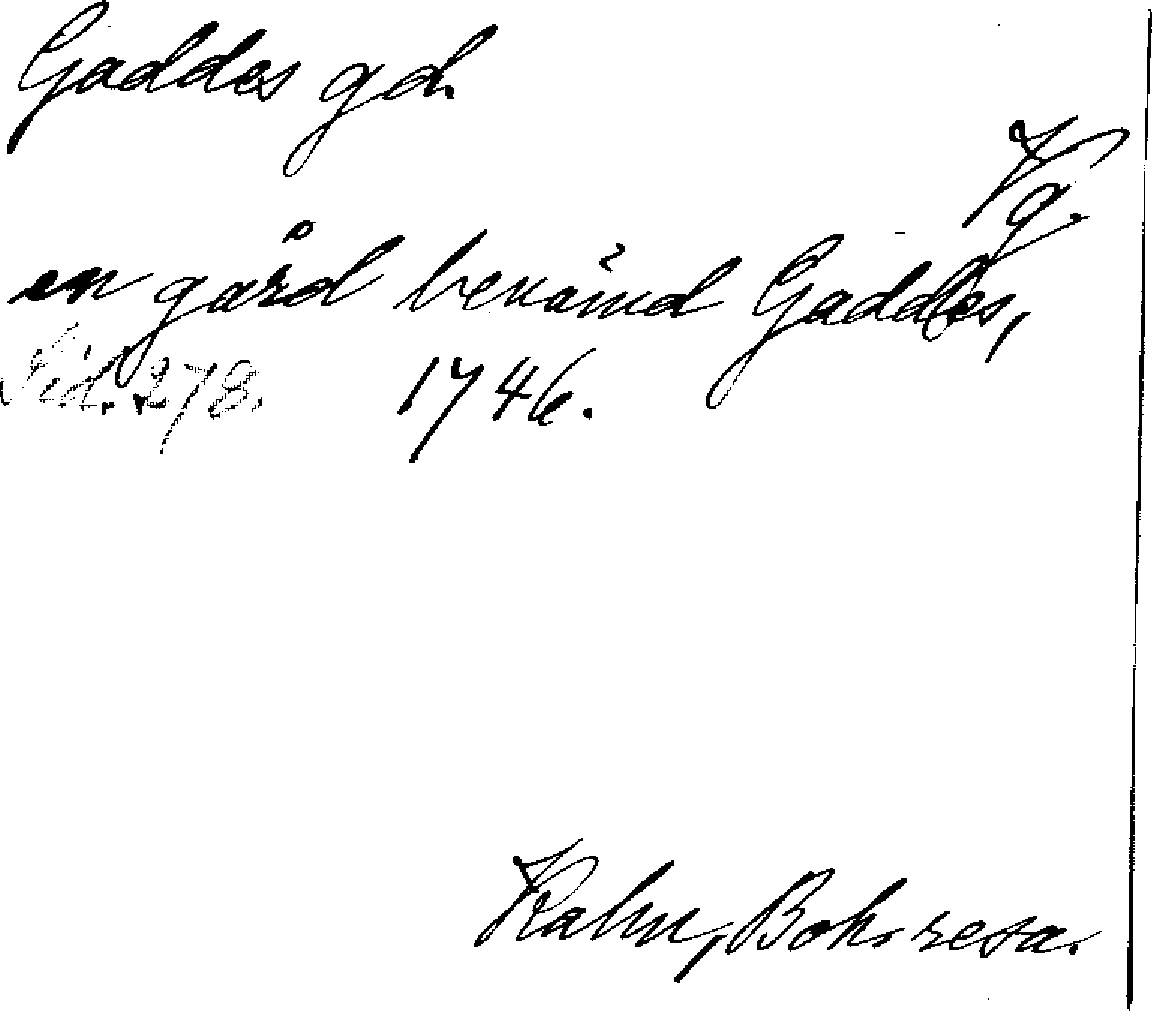 Gaddes gd.
Vg.
en gård benämd Gaddes,
Sid. 278. 1746.
Kalm, Boh. resa.